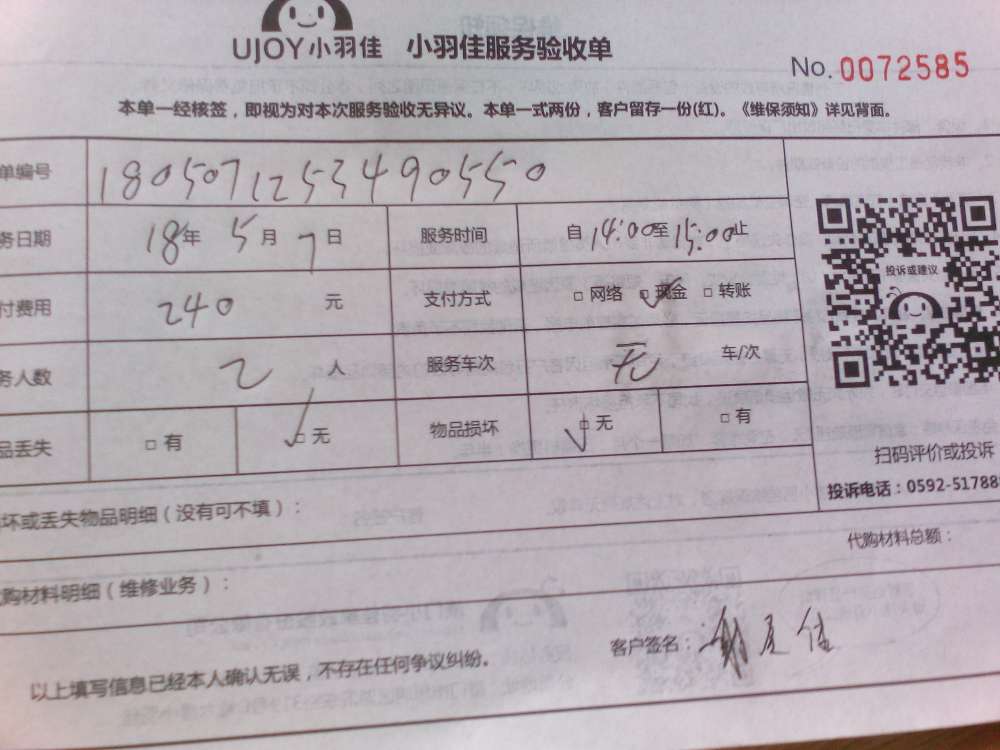 UJOY小羽佳 小羽佳服务验收单
No. 0072585
本单一经核签，即视为对本次服务验收无异议。本单一式两份，客户留存一份(红)。《维保须知》详见背面。
单编号 1805071253490550
务日期 18年 5月 7日 服务时间 自14:00至15:00止
付费用 240 元 支付方式 □网络 ☑现金 □转账
务人数 2 人 服务车次 无 车/次
品丢失 □有 ☑无 物品损坏 ☑无 □有
投诉或建议
扫码评价或投诉
投诉电话：0592-517888
坏或丢失物品明细（没有可不填）：
代购材料总额：
购材料明细（维修业务）：
客户签名：
以上填写信息已经本人确认无误，不存在任何争议纠纷。